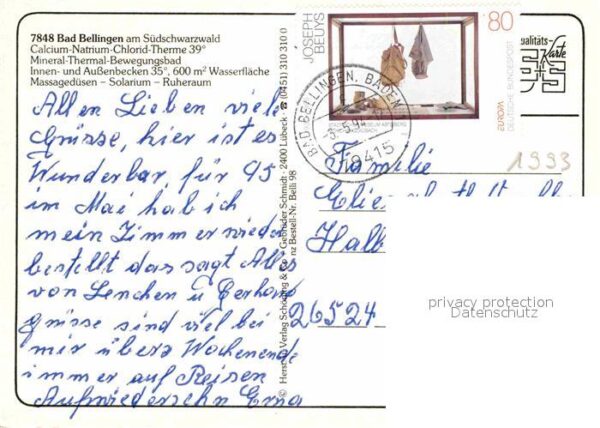 7848 Bad Bellingen am Südschwarzwald
Calcium-Natrium-Chlorid-Therme 39°
Mineral-Thermal-Bewegungsbad
Innen- und Außenbecken 35°, 600 m² Wasserfläche
Massagedüsen – Solarium – Ruheraum
Allen Lieben viele
Grüsse, hier ist es
Wunderbar, für 95
im Mai hab ich
mein Zimmer wieder
bestellt das sagt Alles
von Lenchen u Gerhard
Grüsse sind viel bei
mir übers Wochenende
immer auf Reisen
Aufwiedersehn Erna
Schöning & Co + Gebrüder Schmidt · 2400 Lübeck · ☎ (0451) 310 310 0
Bestell-Nr. Belli 98
JOSEPH BEUYS
80
EUROPA
DEUTSCHE BUNDESPOST
BAD BELLINGEN, BADEN
79415
Qualitäts-
Karte
1993
Familie
Halb
26524
privacy protection
Datenschutz